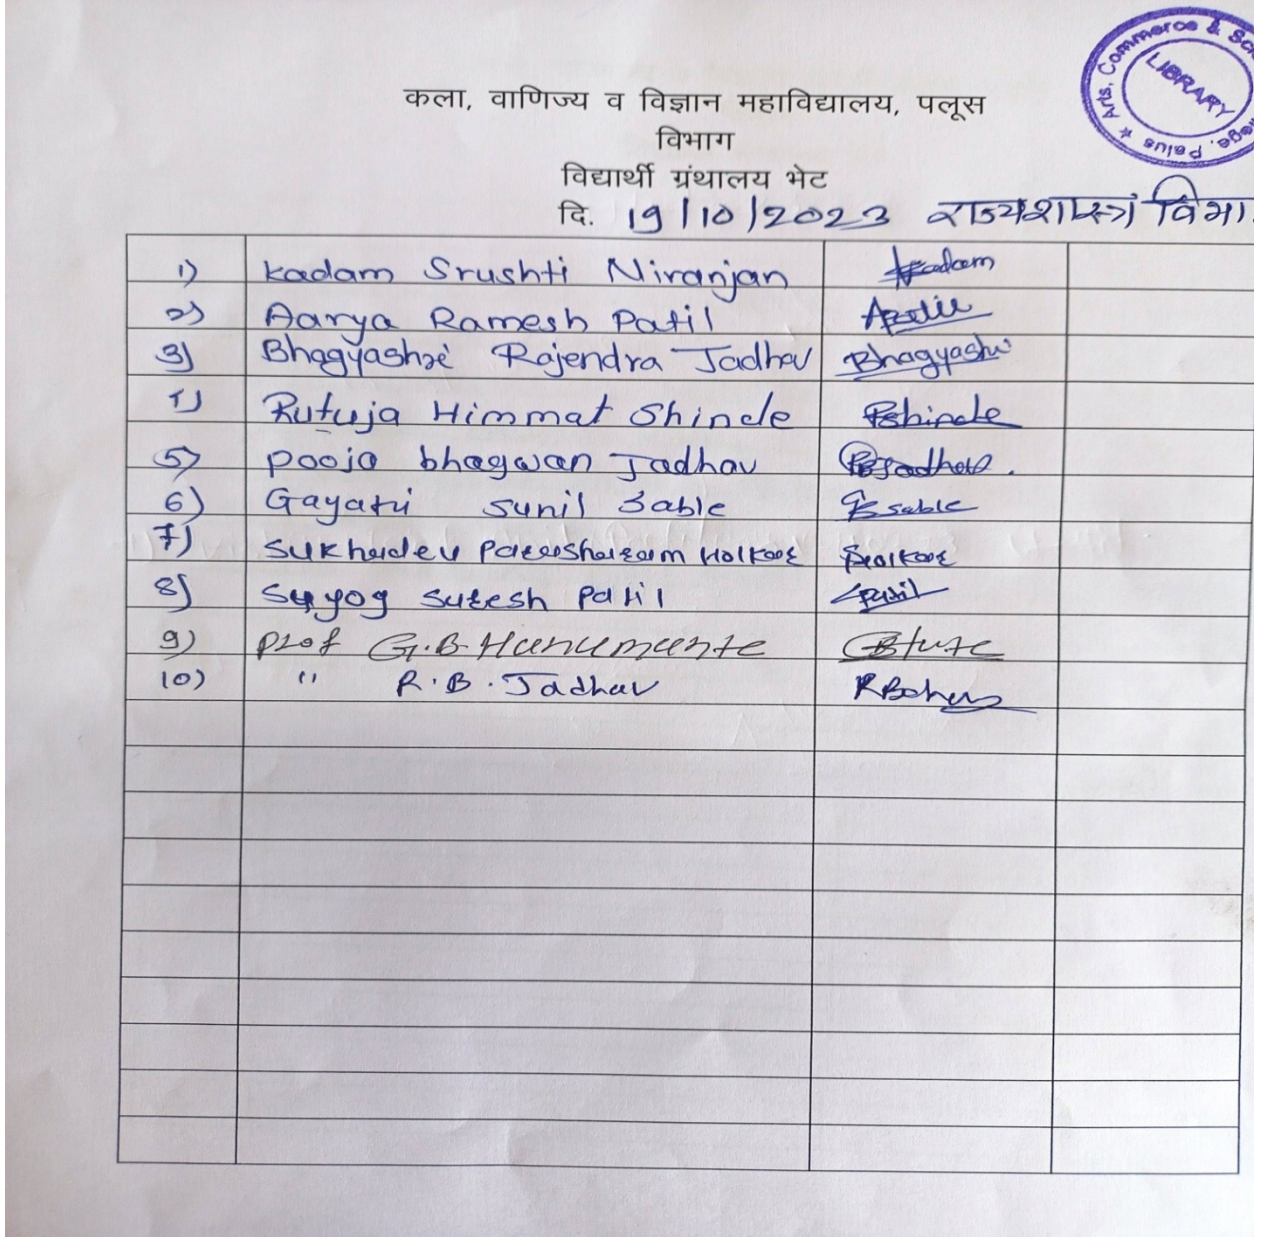 Arts, Commerce & Sc
LIBRARY
Palus
कला, वाणिज्य व विज्ञान महाविद्यालय, पलूस
विभाग
विद्यार्थी ग्रंथालय भेट
दि. 19/10/2023 राज्यशास्त्र विभा
1) Kadam Srushti Niranjan Kadam
2) Aarya Ramesh Patil
3) Bhagyashri Rajendra Jadhav Bhagyashri
4) Rutuja Himmat Shinde RShinde
5) Pooja bhagwan Jadhav PBJadhav.
6) Gayatri Sunil Sable GSsable
7) Sukhadev Parasharam Holkar SHolkar
8) Suyog Suresh Patil SPatil
9) Prof G.B. Hanumante
10) " R.B. Jadhav